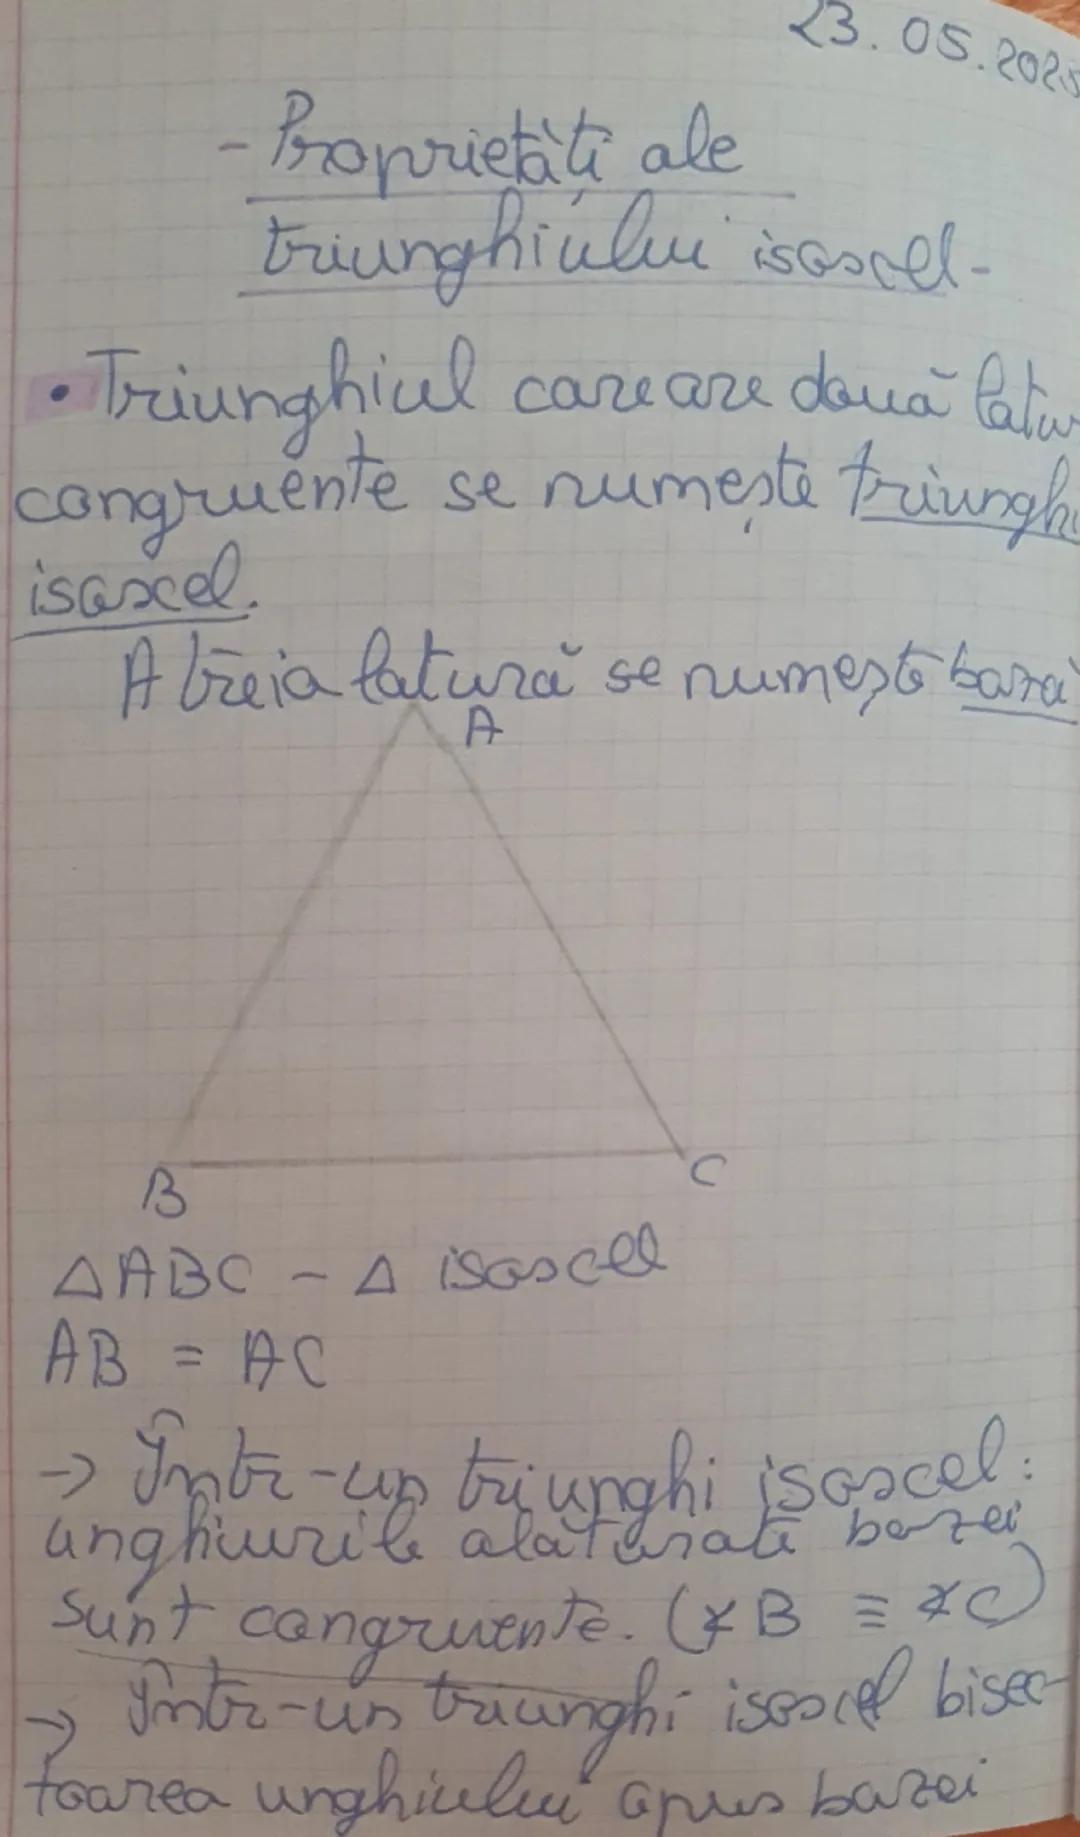 23. 05. 2025
- Proprietăți ale
triunghiului isoscel -
• Triunghiul care are două latu
congruente se numește triunghi
isoscel.
A treia latură se numește bază
A
B
C
△ABC - △ isoscel
AB = AC
-> Într-un triunghi isoscel:
unghiurile alăturate bazei
sunt congruente. (∢B ≡ ∢C)
-> Într-un triunghi isoscel bisec-
toarea unghiului opus bazei